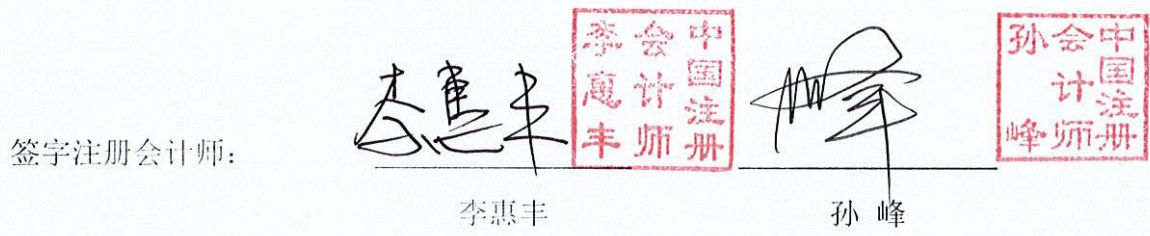 签字注册会计师：
李惠丰
中国注册
会计师
李惠丰
孙峰
中国注册
会计师
孙峰
李惠丰
孙 峰